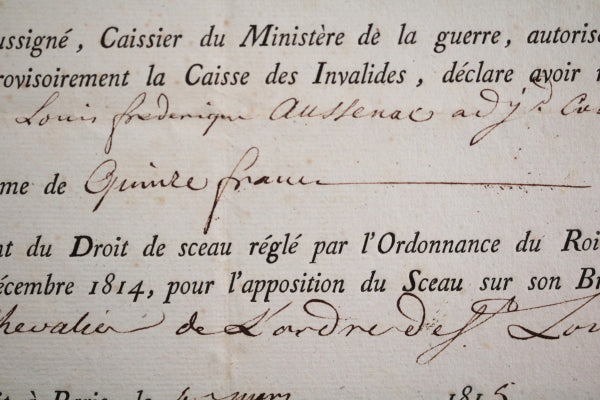 ussigné, Caissier du Ministère de la guerre, autorisé
rovisoirement la Caisse des Invalides, déclare avoir r
Louis frederique Aussenac adj.d Co
me de Quinze francs
nt du Droit de sceau réglé par l'Ordonnance du Roi
écembre 1814, pour l'apposition du Sceau sur son Br
chevalier de L'ordre de St Lou
it à Paris, le mars 1815